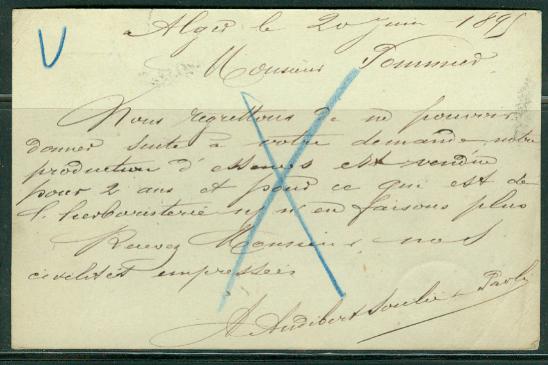 Alger le 20 Juin 1895
Monsieur Pommier
Nous regrettons de ne pouvoir
donner suite à votre demande notre
production d'essences est vendue
pour 2 ans et pour ce qui est de
l'herboristerie ns n'en faisons plus
Recevez Monsieur nos
civilités empressées
A Audibert Soulié & Paoli